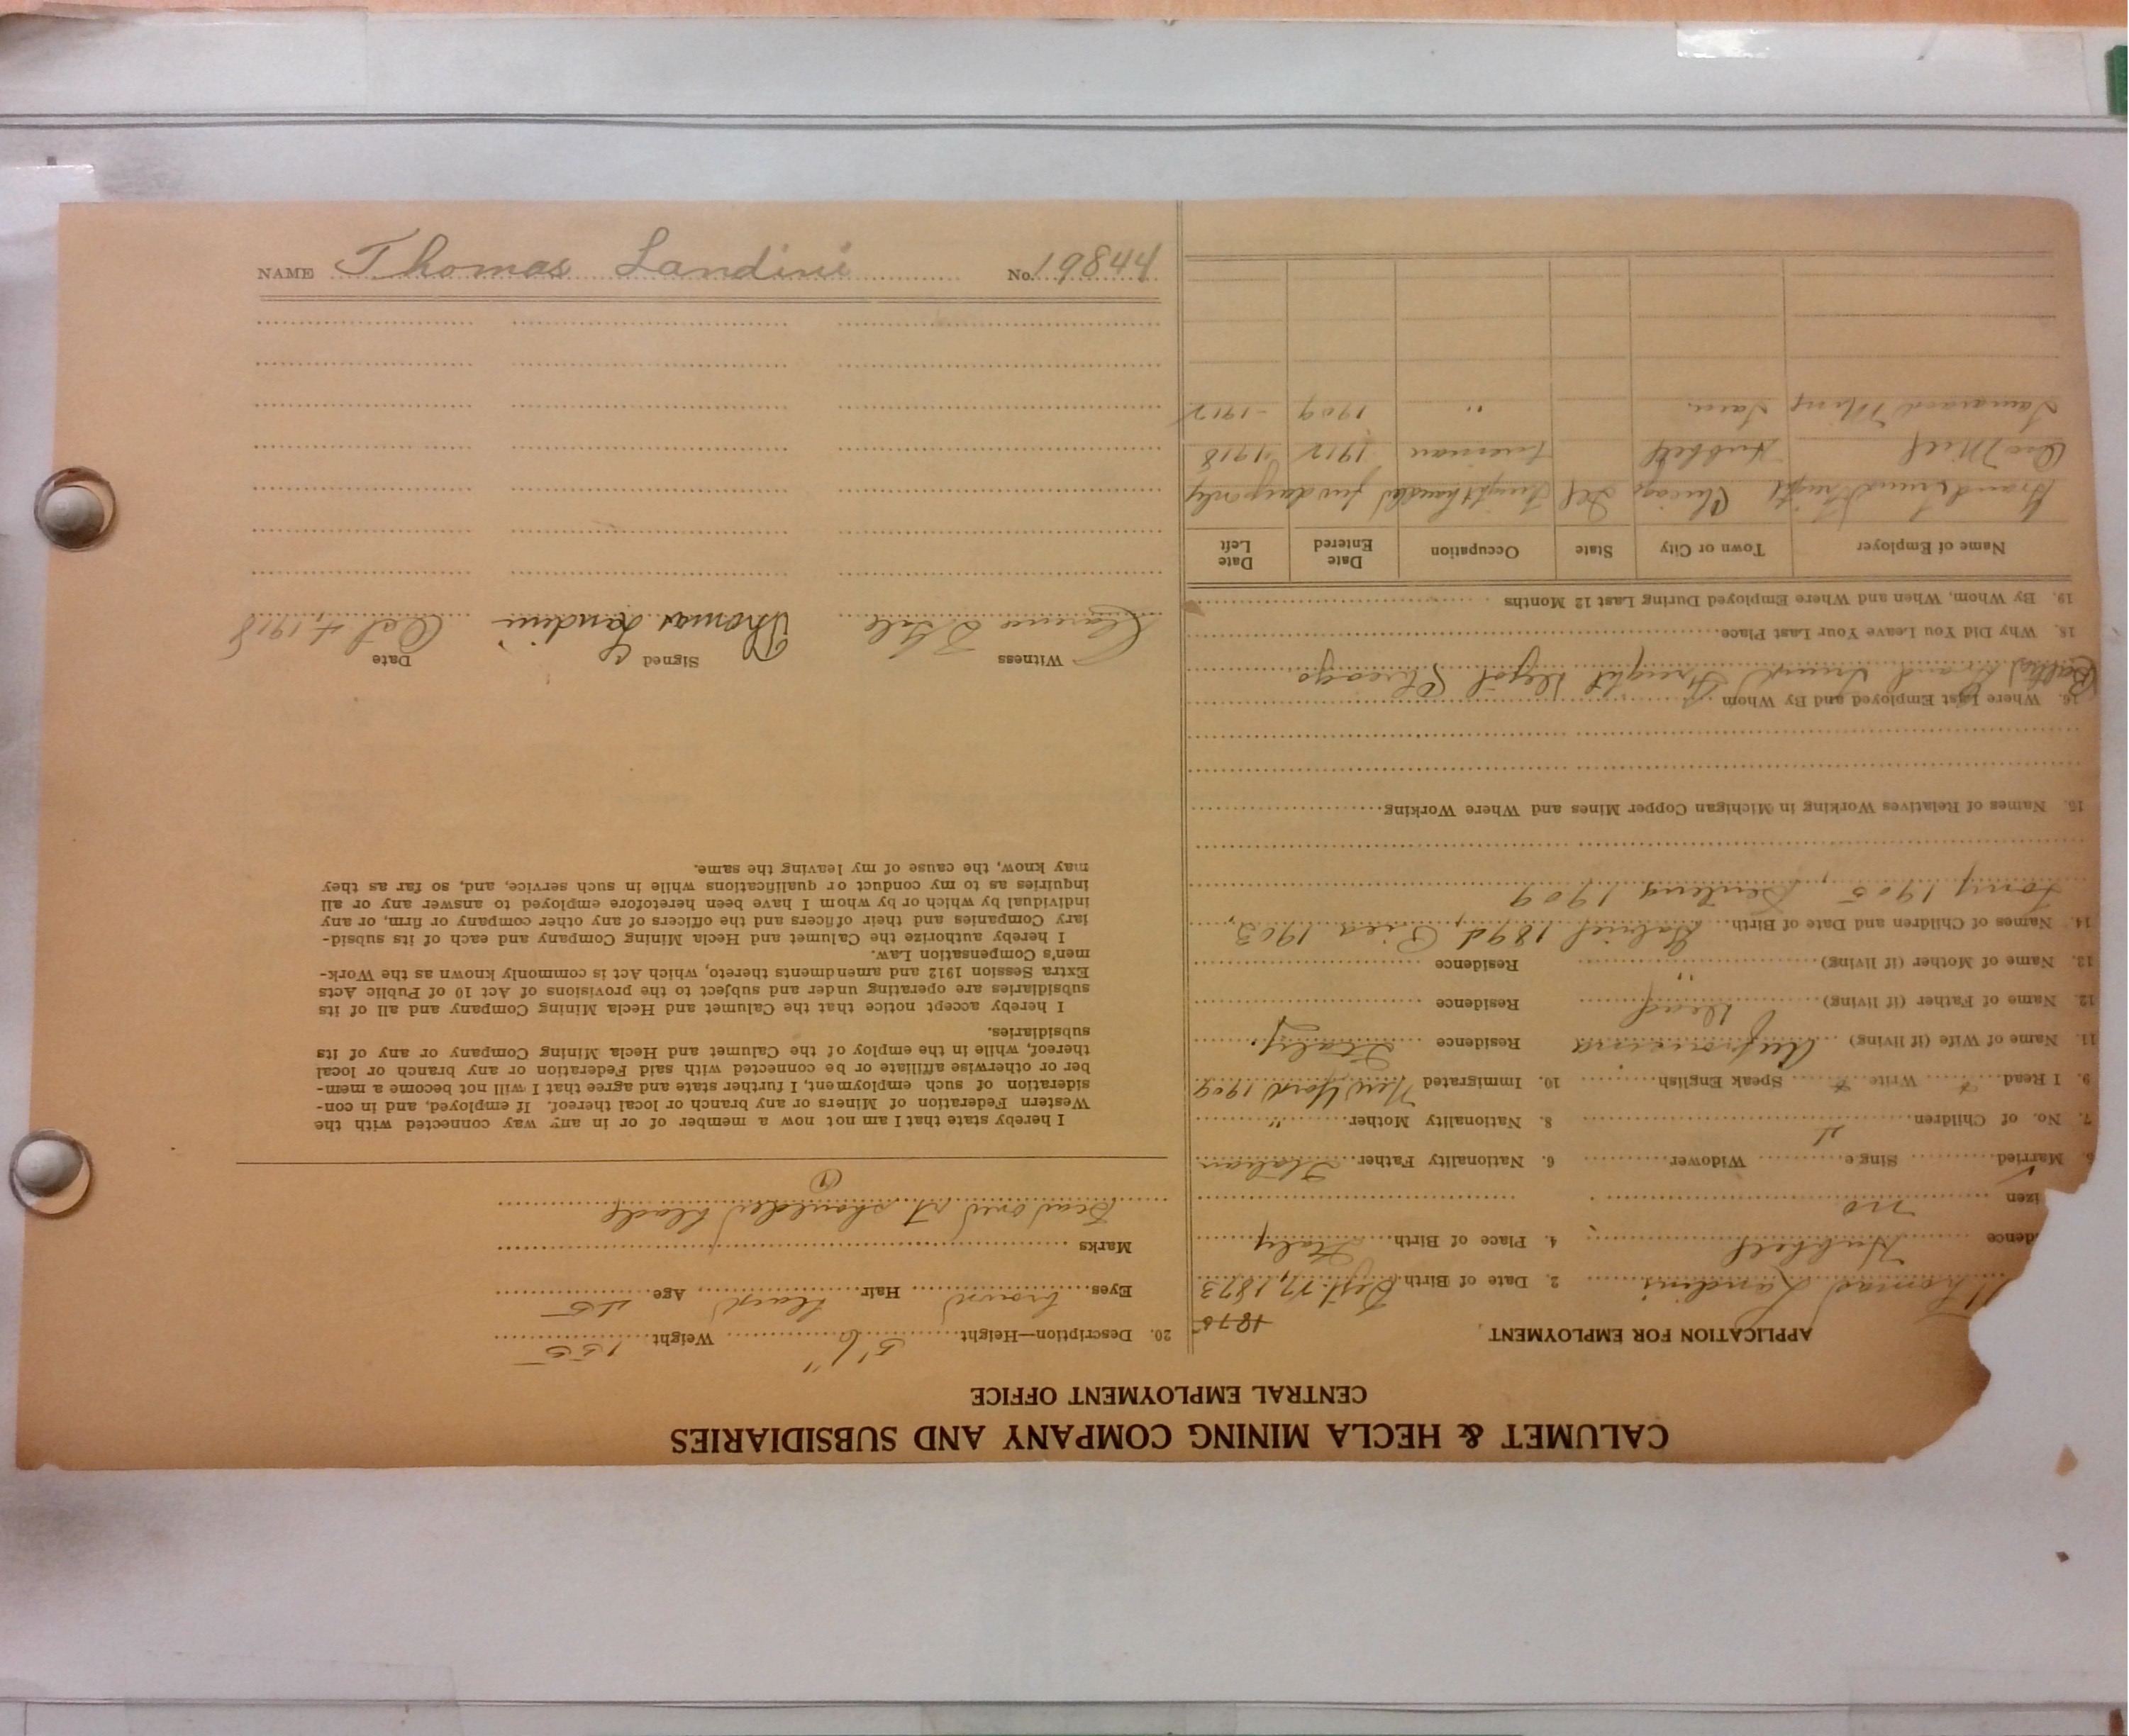 NAME Thomas Landini No. 19844
CALUMET & HECLA MINING COMPANY AND SUBSIDIARIES
CENTRAL EMPLOYMENT OFFICE
APPLICATION FOR EMPLOYMENT
1875
Thomas Landini 2. Date of Birth Sept. 17, 1873
dence Hubbell 4. Place of Birth Italy
izen no
5. Married Single Widower 6. Nationality Father Italian
7. No. of Children 4 8. Nationality Mother "
9. I Read Write Speak English 10. Immigrated New York 1909
11. Name of Wife (if living) Residence Italy
12. Name of Father (if living) Dead Residence
13. Name of Mother (if living) " Residence
14. Names of Children and Date of Birth Gabriel 1898, 1903,
Tony 1905, 1909
15. Names of Relatives Working in Michigan Copper Mines and Where Working
16. Where Last Employed and By Whom
Grand Trunk Freight Depot Chicago
18. Why Did You Leave Your Last Place
19. By Whom, When and Where Employed During Last 12 Months
Name of Employer Town or City State Occupation Date Entered Date Left
Grand Trunk Freight Chicago Ill Freight handler few days only
Mill Hubbell fireman 1912 1918
Tamarack Mine " 1909 - 1912
20. Description—Height 5'6" Weight 155
Eyes brown Hair black Age 45
Marks
Scar on rt. shoulder blade
1
I hereby state that I am not now a member of or in any way connected with the
Western Federation of Miners or any branch or local thereof. If employed, and in con-
sideration of such employment, I further state and agree that I will not become a mem-
ber or otherwise affiliate or be connected with said Federation or any branch or local
thereof, while in the employ of the Calumet and Hecla Mining Company or any of its
subsidiaries.
I hereby accept notice that the Calumet and Hecla Mining Company and all of its
subsidiaries are operating under and subject to the provisions of Act 10 of Public Acts
Extra Session 1912 and amendments thereto, which Act is commonly known as the Work-
men's Compensation Law.
I hereby authorize the Calumet and Hecla Mining Company and each of its subsid-
iary Companies and their officers and the officers of any other company or firm, or any
individual by which or by whom I have been heretofore employed to answer any or all
inquiries as to my conduct or qualifications while in such service, and, so far as they
may know, the cause of my leaving the same.
Witness Signed Date
Clarence Thomas Landini Oct 4, 1918